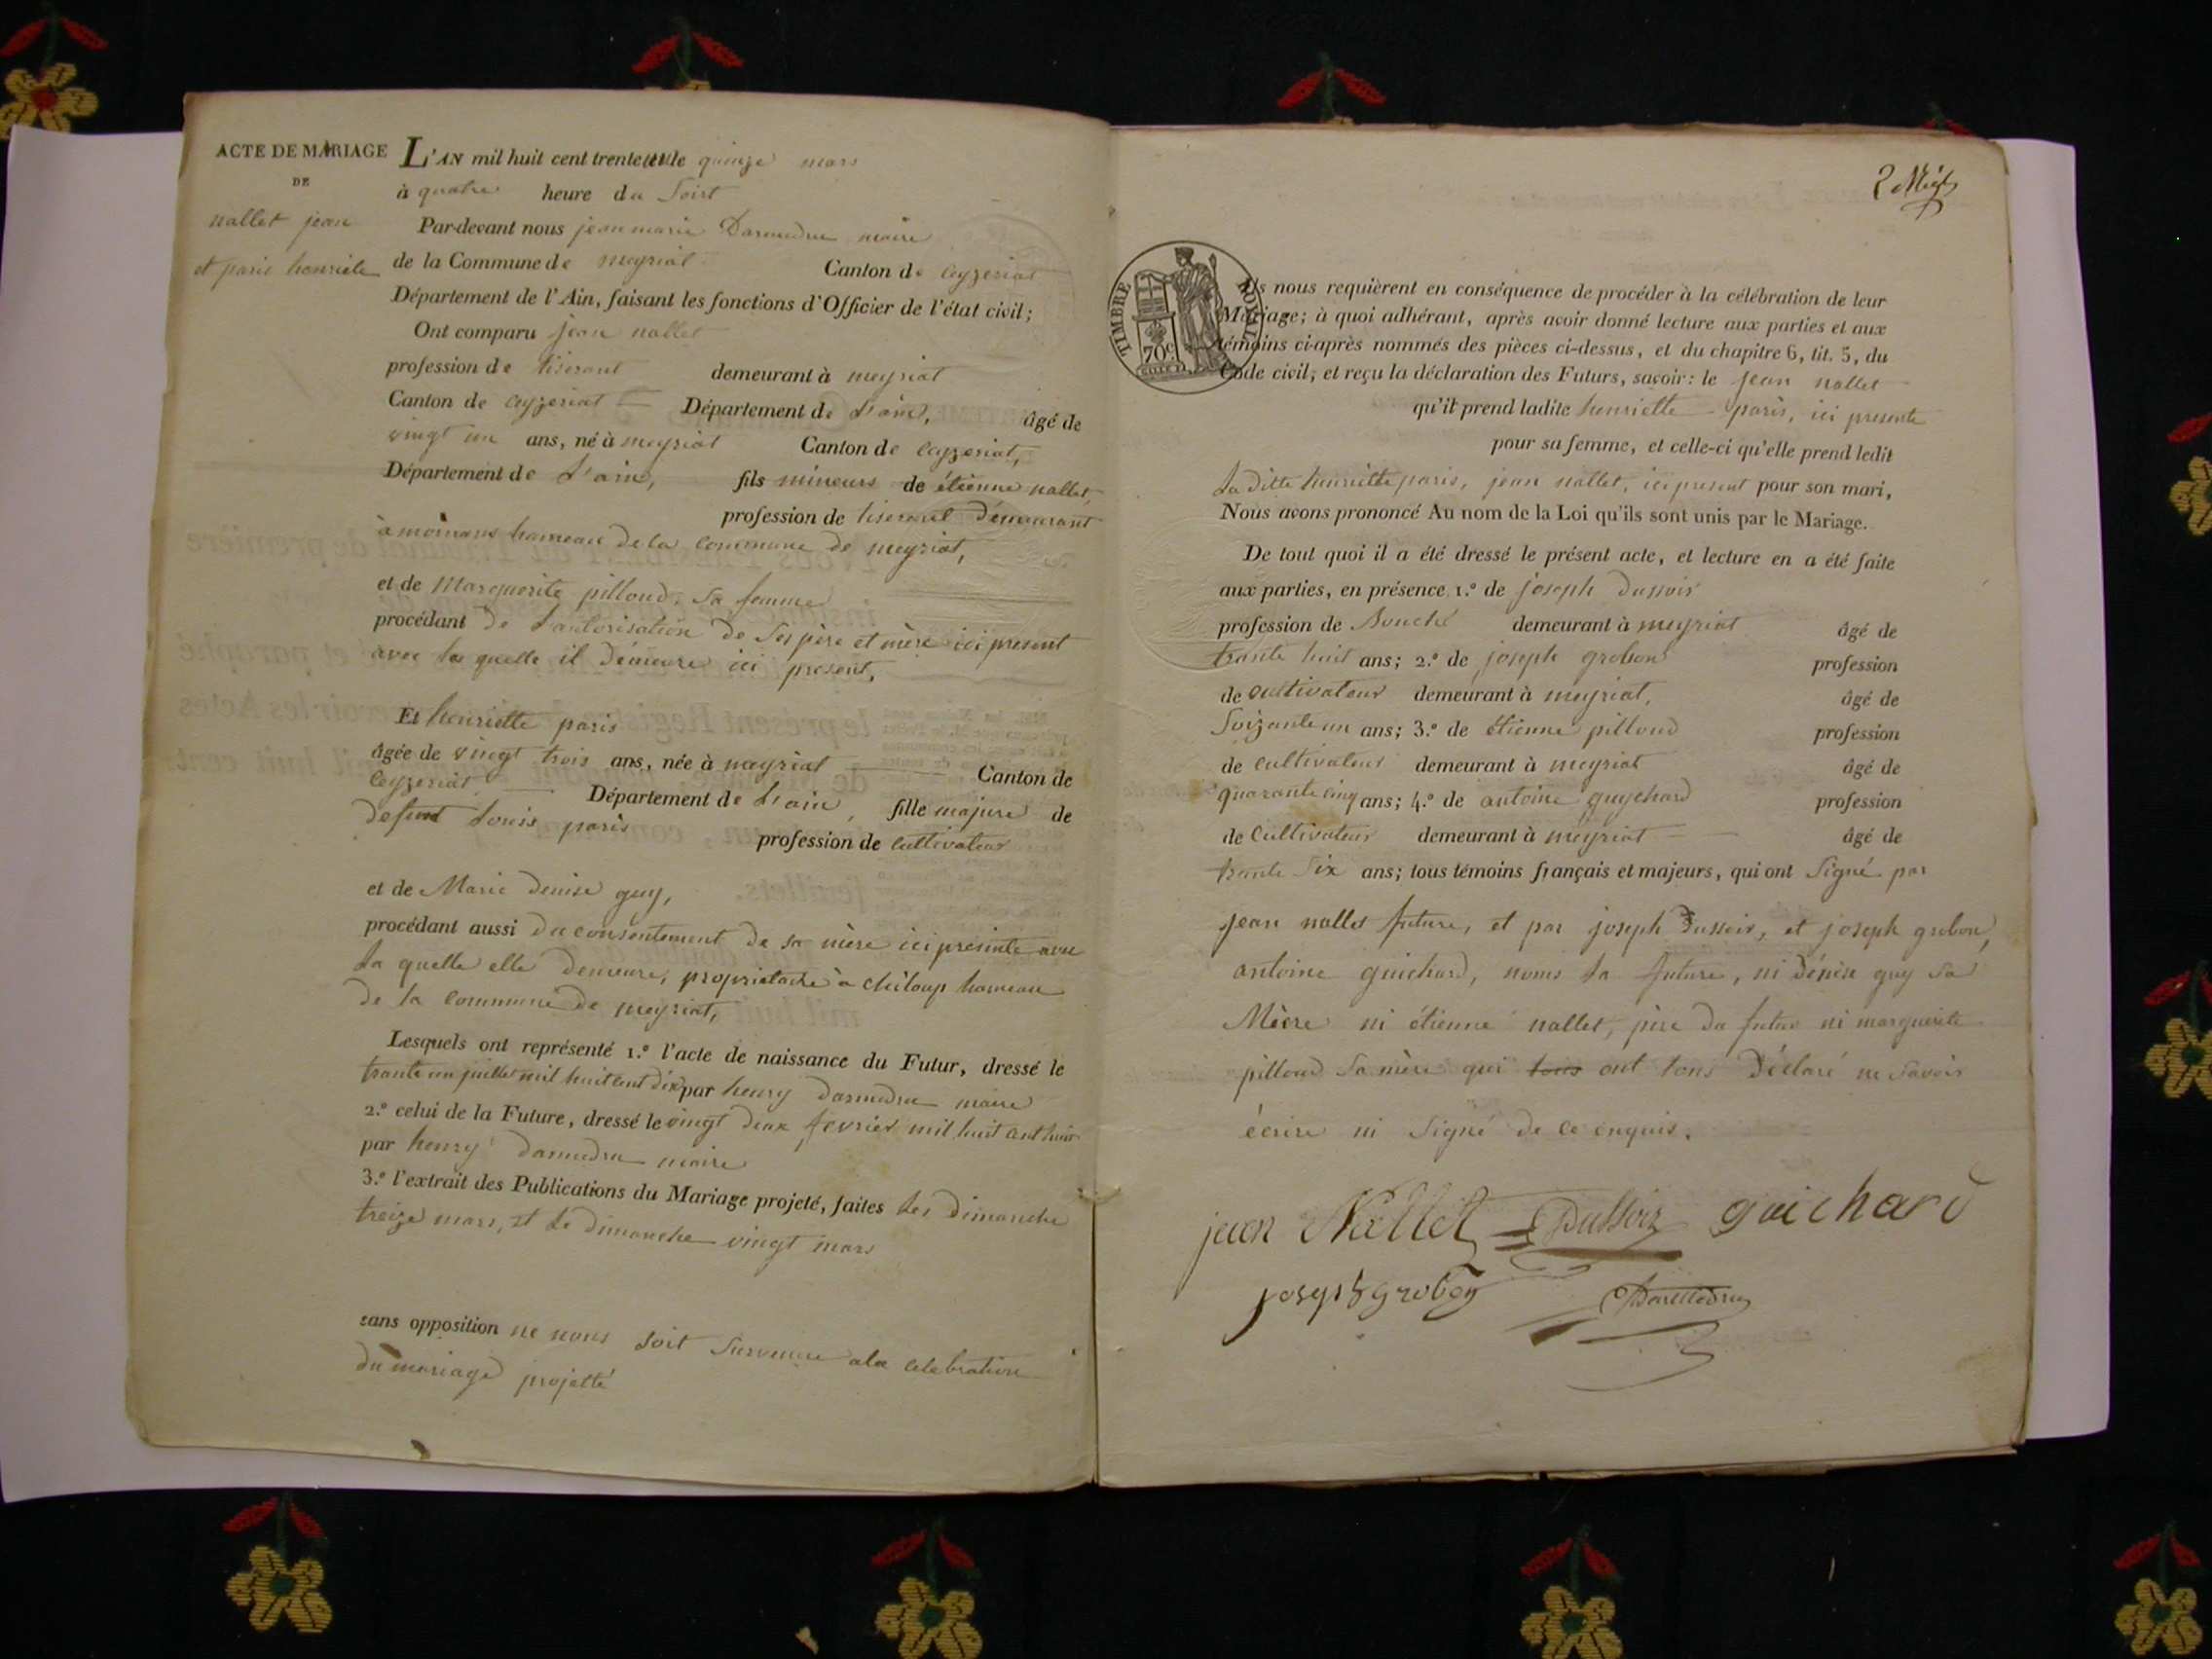 ACTE DE MARIAGE
DE
nallet jean
et paris henriete
L'AN mil huit cent trente un le quinze mars
à quatre heure du Soirt
Par-devant nous jean marie Darmedru maire
de la Commune de meyriat Canton de ceyzeriat
Département de l'Ain, faisant les fonctions d'Officier de l'état civil;
Ont comparu jean nallet
profession de tiserant demeurant à meyriat
Canton de ceyzeriat Département de L'ain, âgé de
vingt un ans, né à meyriat Canton de ceyzeriat,
Département de L'ain, fils mineurs de étienne nallet,
profession de tiserant Demeurant
à moinans hameau de la commune de meyriat,
et de Marguerite pilloud, sa femme
procédant De L'autorisation De Ses père et mère ici present
avec les quelle il Demeure ici present,
Et henriette paris
âgée de vingt trois ans, née à meyriat Canton de
Ceyzeriat Département de L'ain, fille majure de
Defunt Louis paris profession de cultivateur
et de Marie Denise guy,
procédant aussi Du consentement De sa mère ici presente avec
La quelle elle Demeure, proprietaire à chiloup hameau
De la commune De meyriat,
Lesquels ont représenté 1.º l'acte de naissance du Futur, dressé le
trante un juillet mil huit cent dix par henry Darmedru maire
2.º celui de la Future, dressé le vingt Deux fevrier mil huit cent huit
par henry Darmedru maire
3.º l'extrait des Publications du Mariage projeté, faites Les Dimanche
treize mars, et Le Dimanche vingt mars
sans opposition ne nous Soit Survenue a la celebration
Du mariage projetté
TIMBRE ROYAL
70c
Ils nous requièrent en conséquence de procéder à la célébration de leur
Mariage; à quoi adhérant, après avoir donné lecture aux parties et aux
témoins ci-après nommés des pièces ci-dessus, et du chapitre 6, tit. 5, du
Code civil, et reçu la déclaration des Futurs, savoir: le jean nallet
qu'il prend ladite henriette paris, ici presente
pour sa femme, et celle-ci qu'elle prend ledit
La Ditte henriette paris, jean nallet, ici present pour son mari,
Nous avons prononcé Au nom de la Loi qu'ils sont unis par le Mariage.
De tout quoi il a été dressé le présent acte, et lecture en a été faite
aux parties, en présence 1.º de joseph Dussoir
profession de Bouché demeurant à meyriat âgé de
trante huit ans; 2.º de joseph grobon profession
de cultivateur demeurant à meyriat, âgé de
Soizante un ans; 3.º de étienne pilloud profession
de cultivateur demeurant à meyriat âgé de
quarante cinq ans; 4.º de antoine guychard profession
de cultivateur demeurant à meyriat âgé de
trante Six ans; tous témoins français et majeurs, qui ont Signé par
jean nallet future, et par joseph Dussoir, et joseph grobon,
antoine guichard, nons la future, ni Dénise guy Sa
Mère ni étienne nallet, père du futur ni marguerite
pilloud Sa mère qui tous ont tous Déclaré ne Savoir
écrire ni Signé de ce enquis.
jean Nallet Dussoir guichard
joseph grobon Darmedru